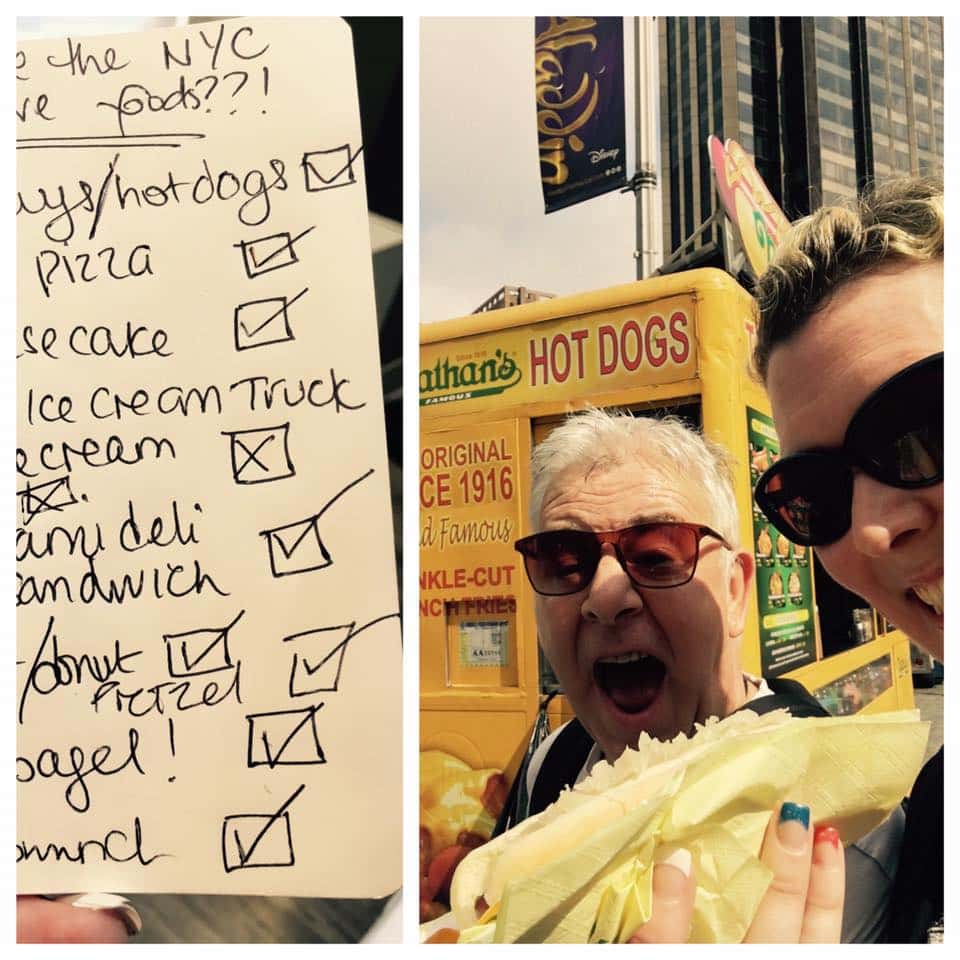 e the NYC
ve foods??!
uys/hotdogs
pizza
secake
Ice cream Truck
ecream
ami deli
andwich
/donut
Pretzel
bagel!
Aladdin
Disney
Since 1916
athan's
FAMOUS
HOT DOGS
ORIGINAL
CE 1916
d Famous
NKLE-CUT
NCH FRIES